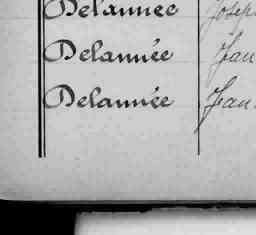 Delannée Josep
Delannée Jean
Delannée Jean